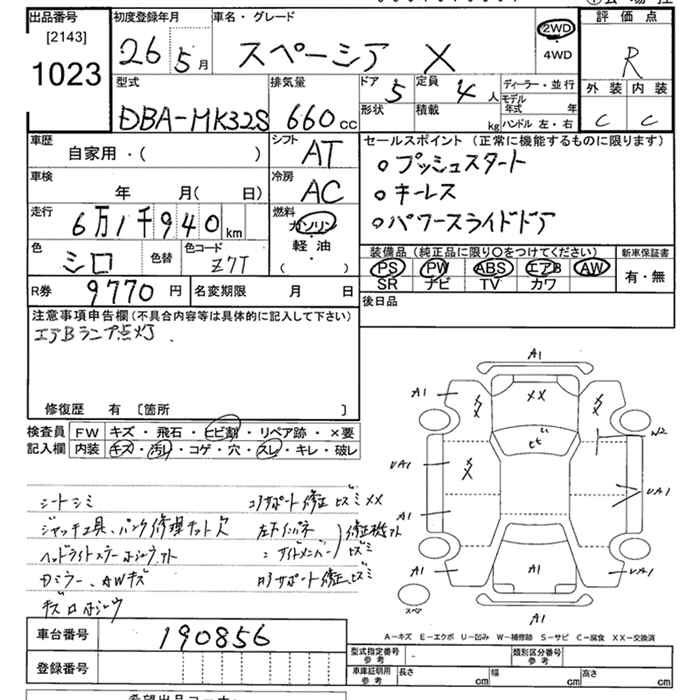 出品番号
[2143]
1023
初度登録年月
26 5月
車名・グレード
スペーシア X
2WD
・
4WD
評価点
R
外装 内装
C C
型式
DBA-MK32S
排気量
660cc
ドア 5
定員 4人
形状
積載 kg
ディーラー・並行
モデル年式 年
ハンドル 左・右
車歴
自家用・( )
シフト
AT
車検
年 月( 日)
冷房
AC
走行
6万1千940km
燃料
ガソリン
・
軽油
( )
色
シロ
色替
色コード
Z7T
R券 9770円
名変期限 月 日
セールスポイント (正常に機能するものに限ります)
○プッシュスタート
○キーレス
○パワースライドドア
装備品(純正品に限り○をつけてください)
PS PW ABS エアB AW
SR ナビ TV カワ
新車保証書
有・無
後日品
注意事項申告欄(不具合内容等は具体的に記入して下さい)
エアBランプ点灯
修復歴 有 [箇所 ]
検査員記入欄
FW キズ・飛石・ヒビ割・リペア跡・×要
内装 キズ・汚レ・コゲ・穴・スレ・キレ・破レ
シートシミ
ジャッキ工具、パンク修理キット欠
コアサポート修正ヒズミ XX
Dミラー、AWキズ
A1
A1
XX
A1
UA1
A1
UA1
UA1
A1
A1
スペア
A-キズ E-エクボ U-凹み W-補修跡 S-サビ C-腐食 XX-交換済
車台番号
190856
登録番号
型式指定番号 参考
類別区分番号 参考
車庫証明用 参考
長さ cm
幅 cm
高さ cm